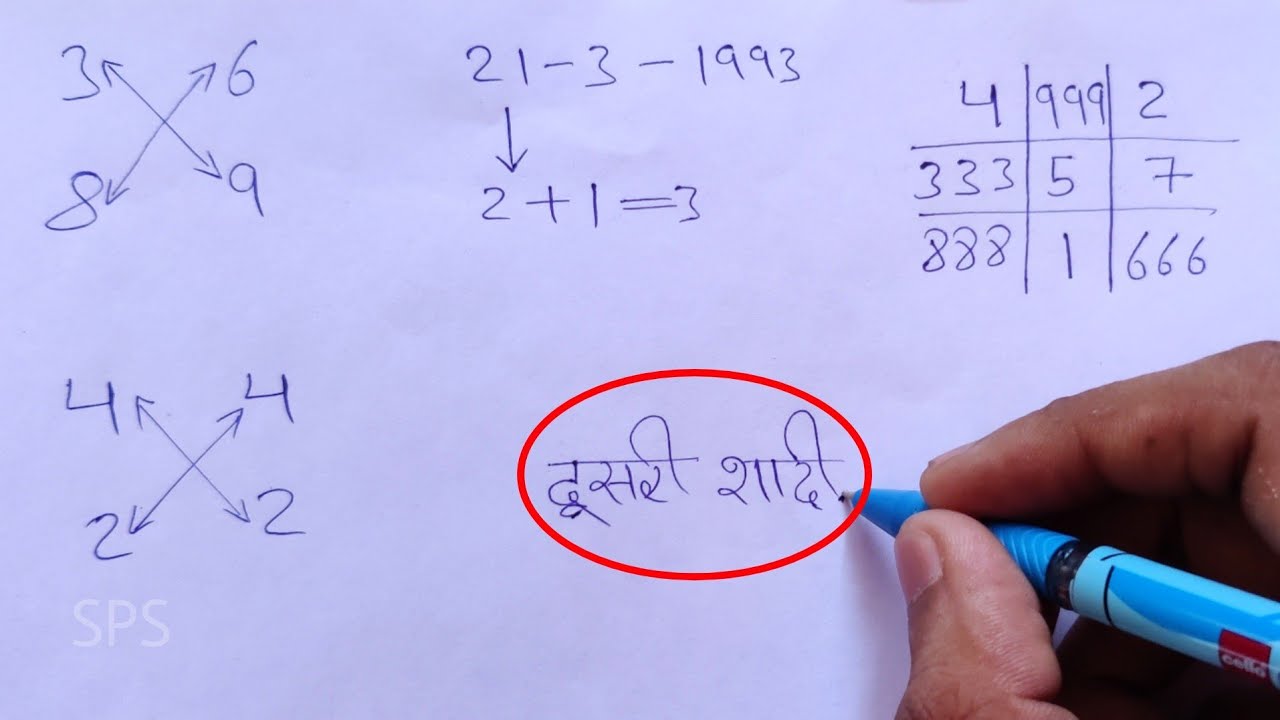 3 6
8 9
21-3-1993
2+1=3
4 999 2
333 5 7
888 1 666
4 4
2 2
दूसरी शादी
SPS
cello